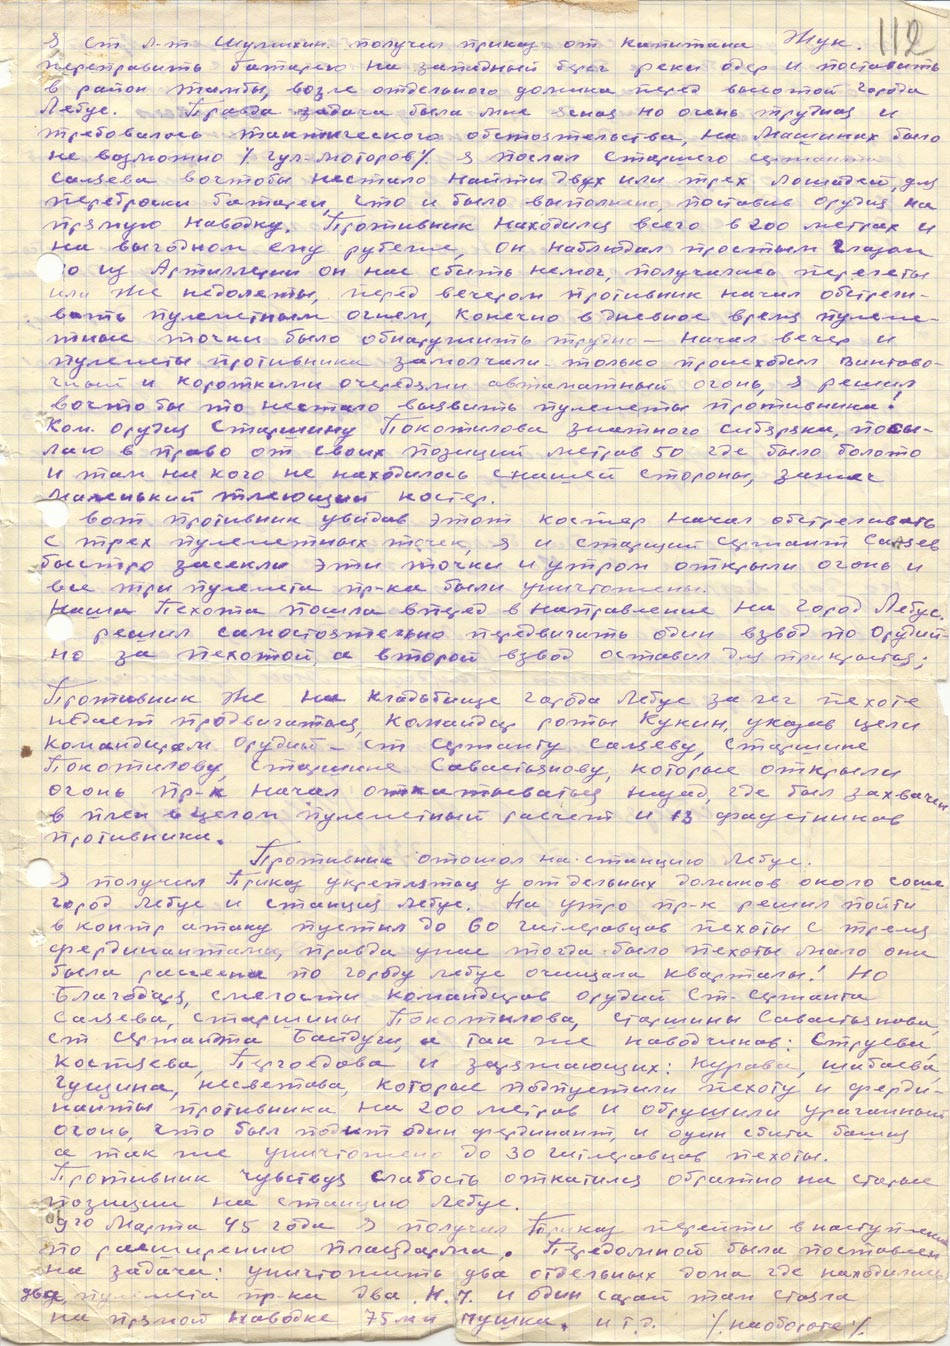 112
Я ст л-т Шумихин. получил приказ от капитана Жук.
переправить батарею на западный берег реки одер и поставить
в район дамбы, возле отдельного домика перед высотой города
Лебус. Правда задача была мне ясна но очень трудная и
требовалось тактического обстоятельства, на машинах было
не возможно % гул-моторов % я послал старшего сержанта
Саляева вочтобы нестало найти двух или трех лошадей, для
переброски батареи, что и было выполнено поставив орудия на
прямую наводку. Противник находился всего в 200 метрах и
на выгодном ему рубеже, он наблюдал простым глазом
но из Артиллерии он нас сбить немог, получались перелеты
или же недолеты, перед вечером противник начил обстрели-
вать пулеметным огнем, конечно в дневное время пулеме-
тные точки было обнаружить трудно — начал вечер и
пулеметы противника замолчали — только происходил винтово-
чный и короткими очередями автаматный огонь, я решил
вочтобы то нестало вызвить пулеметы противника!
Ком. орудия Старшину Покотилова знатного сибиряка, посы-
лаю в право от своих позиций метров 50 где было болото
и там ни кого не находилось снашей стороны, зажег
маленький тлеющий костер.
вот противник увидав этот костер начал обстреливать
с трех пулеметных точек, я и старший сержант Саляев
быстро засекли эти точки и утром открыли огонь и
все три пулемета пр-ка были уничтожены.
Наша Пехота пошла вперед в направление на город Лебус.
решил самостоятельно передвигать один взвод по орудий-
но за пехотой, а второй взвод оставил для прикрытия;
Противник же на кладбище города Лебус залег пехоте
недает продвигаться, командир роты Кукин, указав цели
командирам орудий — ст сержанту Саляеву, старшине
Покотилову, старшине Савастьянову, которые открыли
огонь пр-к начал откатываться назад, где был захвачен
в плен вцелом пулеметный расчет и 13 фаустников
противника.
Противник отошол на станцию Лебус.
Я получил Приказ укрепляться у отдельных домиков около соше
город Лебус и станция Лебус. На утро пр-к решил пойти
в контр атаку пустил до 60 гитлеровцев пехоты с тремя
фердинантами, правда уже тогда было пехоты мало она
была рассеена по городу Лебус очищала кварталы! Но
Благодаря, смелости командиров орудий Ст. Сержанта
Саляева, старшины Покотилова, старшины Савастьянова,
ст Сержанта Байдуги, а так же наводчиков: Струева,
Костяева, Пергоедова и заряжающих: Журава, Шабаева,
Гущина, Несветова, которые подпустили пехоту и ферди-
нанты противника на 200 метров и обрушили ураганный
огонь, что был подбит один фердинант, и один сбита башня
а так же уничтожено до 30 гитлеровцев пехоты.
Противник чувствуя слабость откатился обратно на старые
позиции на станцию Лебус.
9го Марта 45 года я получил Приказ перейти в наступление
по расширению плацдарма. Передомной была поставлен
на задача: уничтожить два отдельных дома где находились
два пулемета пр-ка два Н.П. и один сарай там стояла
на прямой наводке 75 мм пушка. и т.д. % на обороте %